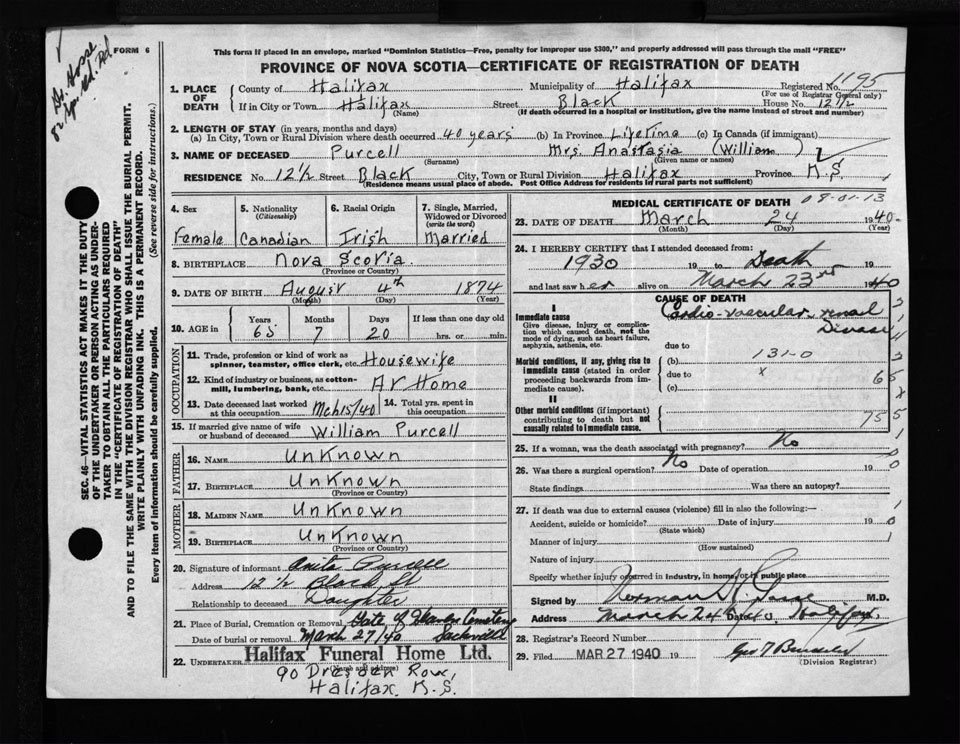 FORM 6
This form if placed in an envelope, marked "Dominion Statistics—Free, penalty for improper use $300," and properly addressed will pass through the mail "FREE"
PROVINCE OF NOVA SCOTIA—CERTIFICATE OF REGISTRATION OF DEATH
1. PLACE OF DEATH
County of Halifax Municipality of Halifax Registered No. 1195
(For use of Registrar General only)
If in City or Town Halifax Street Black House No. 12½
(Name) (If death occurred in a hospital or institution, give the name instead of street and number)
2. LENGTH OF STAY (in years, months and days)
(a) In City, Town or Rural Division where death occurred 40 years (b) In Province Lifetime (c) In Canada (if immigrant)
3. NAME OF DECEASED Purcell Mrs. Anastasia (William)
(Surname) (Given name or names)
RESIDENCE No. 12½ Street Black City, Town or Rural Division Halifax Province N.S.
(Residence means usual place of abode. Post Office Address for residents in rural parts not sufficient)
SEC. 46—VITAL STATISTICS ACT MAKES IT THE DUTY
OF THE UNDERTAKER OR PERSON ACTING AS UNDER-
TAKER TO OBTAIN ALL THE PARTICULARS REQUIRED
IN THE "CERTIFICATE OF REGISTRATION OF DEATH"
AND TO FILE THE SAME WITH THE DIVISION REGISTRAR WHO SHALL ISSUE THE BURIAL PERMIT.
WRITE PLAINLY WITH UNFADING INK. THIS IS A PERMANENT RECORD.
Every item of information should be carefully supplied. (See reverse side for instructions.)
4. Sex Female
5. Nationality (Citizenship) Canadian
6. Racial Origin Irish
7. Single, Married, Widowed or Divorced (write the word) Married
8. BIRTHPLACE Nova Scotia
(Province or Country)
9. DATE OF BIRTH August 4th 1874
(Month) (Day) (Year)
10. AGE in Years 65 Months 7 Days 20 If less than one day old hrs. or min.
OCCUPATION
11. Trade, profession or kind of work as spinner, teamster, office clerk, etc. Housewife
12. Kind of industry or business, as cotton-mill, lumbering, bank, etc. At Home
13. Date deceased last worked at this occupation Mch 15/40 14. Total yrs. spent in this occupation
15. If married give name of wife or husband of deceased William Purcell
FATHER
16. NAME Unknown
17. BIRTHPLACE Unknown
(Province or Country)
MOTHER
18. MAIDEN NAME Unknown
19. BIRTHPLACE Unknown
(Province or Country)
20. Signature of informant Anita Purcell
Address 12½ Black St
Relationship to deceased Daughter
21. Place of Burial, Cremation or Removal Gate of Heaven Cemetery
Date of burial or removal March 27/40 Sackville
22. UNDERTAKER Halifax Funeral Home Ltd.
(Name and address)
90 Dresden Row,
Halifax, N.S.
MEDICAL CERTIFICATE OF DEATH
08-01-13
23. DATE OF DEATH March 24 1940
(Month) (Day) (Year)
24. I HEREBY CERTIFY that I attended deceased from:
1930 19 to Death 19
and last saw her alive on March 23rd 1940
CAUSE OF DEATH
I
Immediate cause Cardio-vascular renal Disease
Give disease, injury or complication which caused death, not the mode of dying, such as heart failure, asphyxia, asthenia, etc.
due to
Morbid conditions, if any, giving rise to immediate cause (stated in order proceeding backwards from immediate cause).
(b) 131-0
due to x
(c)
II
Other morbid conditions (if important) contributing to death but not causally related to immediate cause.
25. If a woman, was the death associated with pregnancy? No
26. Was there a surgical operation? No Date of operation 19
State findings Was there an autopsy?
27. If death was due to external causes (violence) fill in also the following:—
Accident, suicide or homicide? Date of injury 19
(State which)
Manner of injury
(How sustained)
Nature of injury
Specify whether injury occurred in industry, in home, or in public place
Signed by M.D.
Address Date
28. Registrar's Record Number
29. Filed MAR 27 1940 19
(Division Registrar)